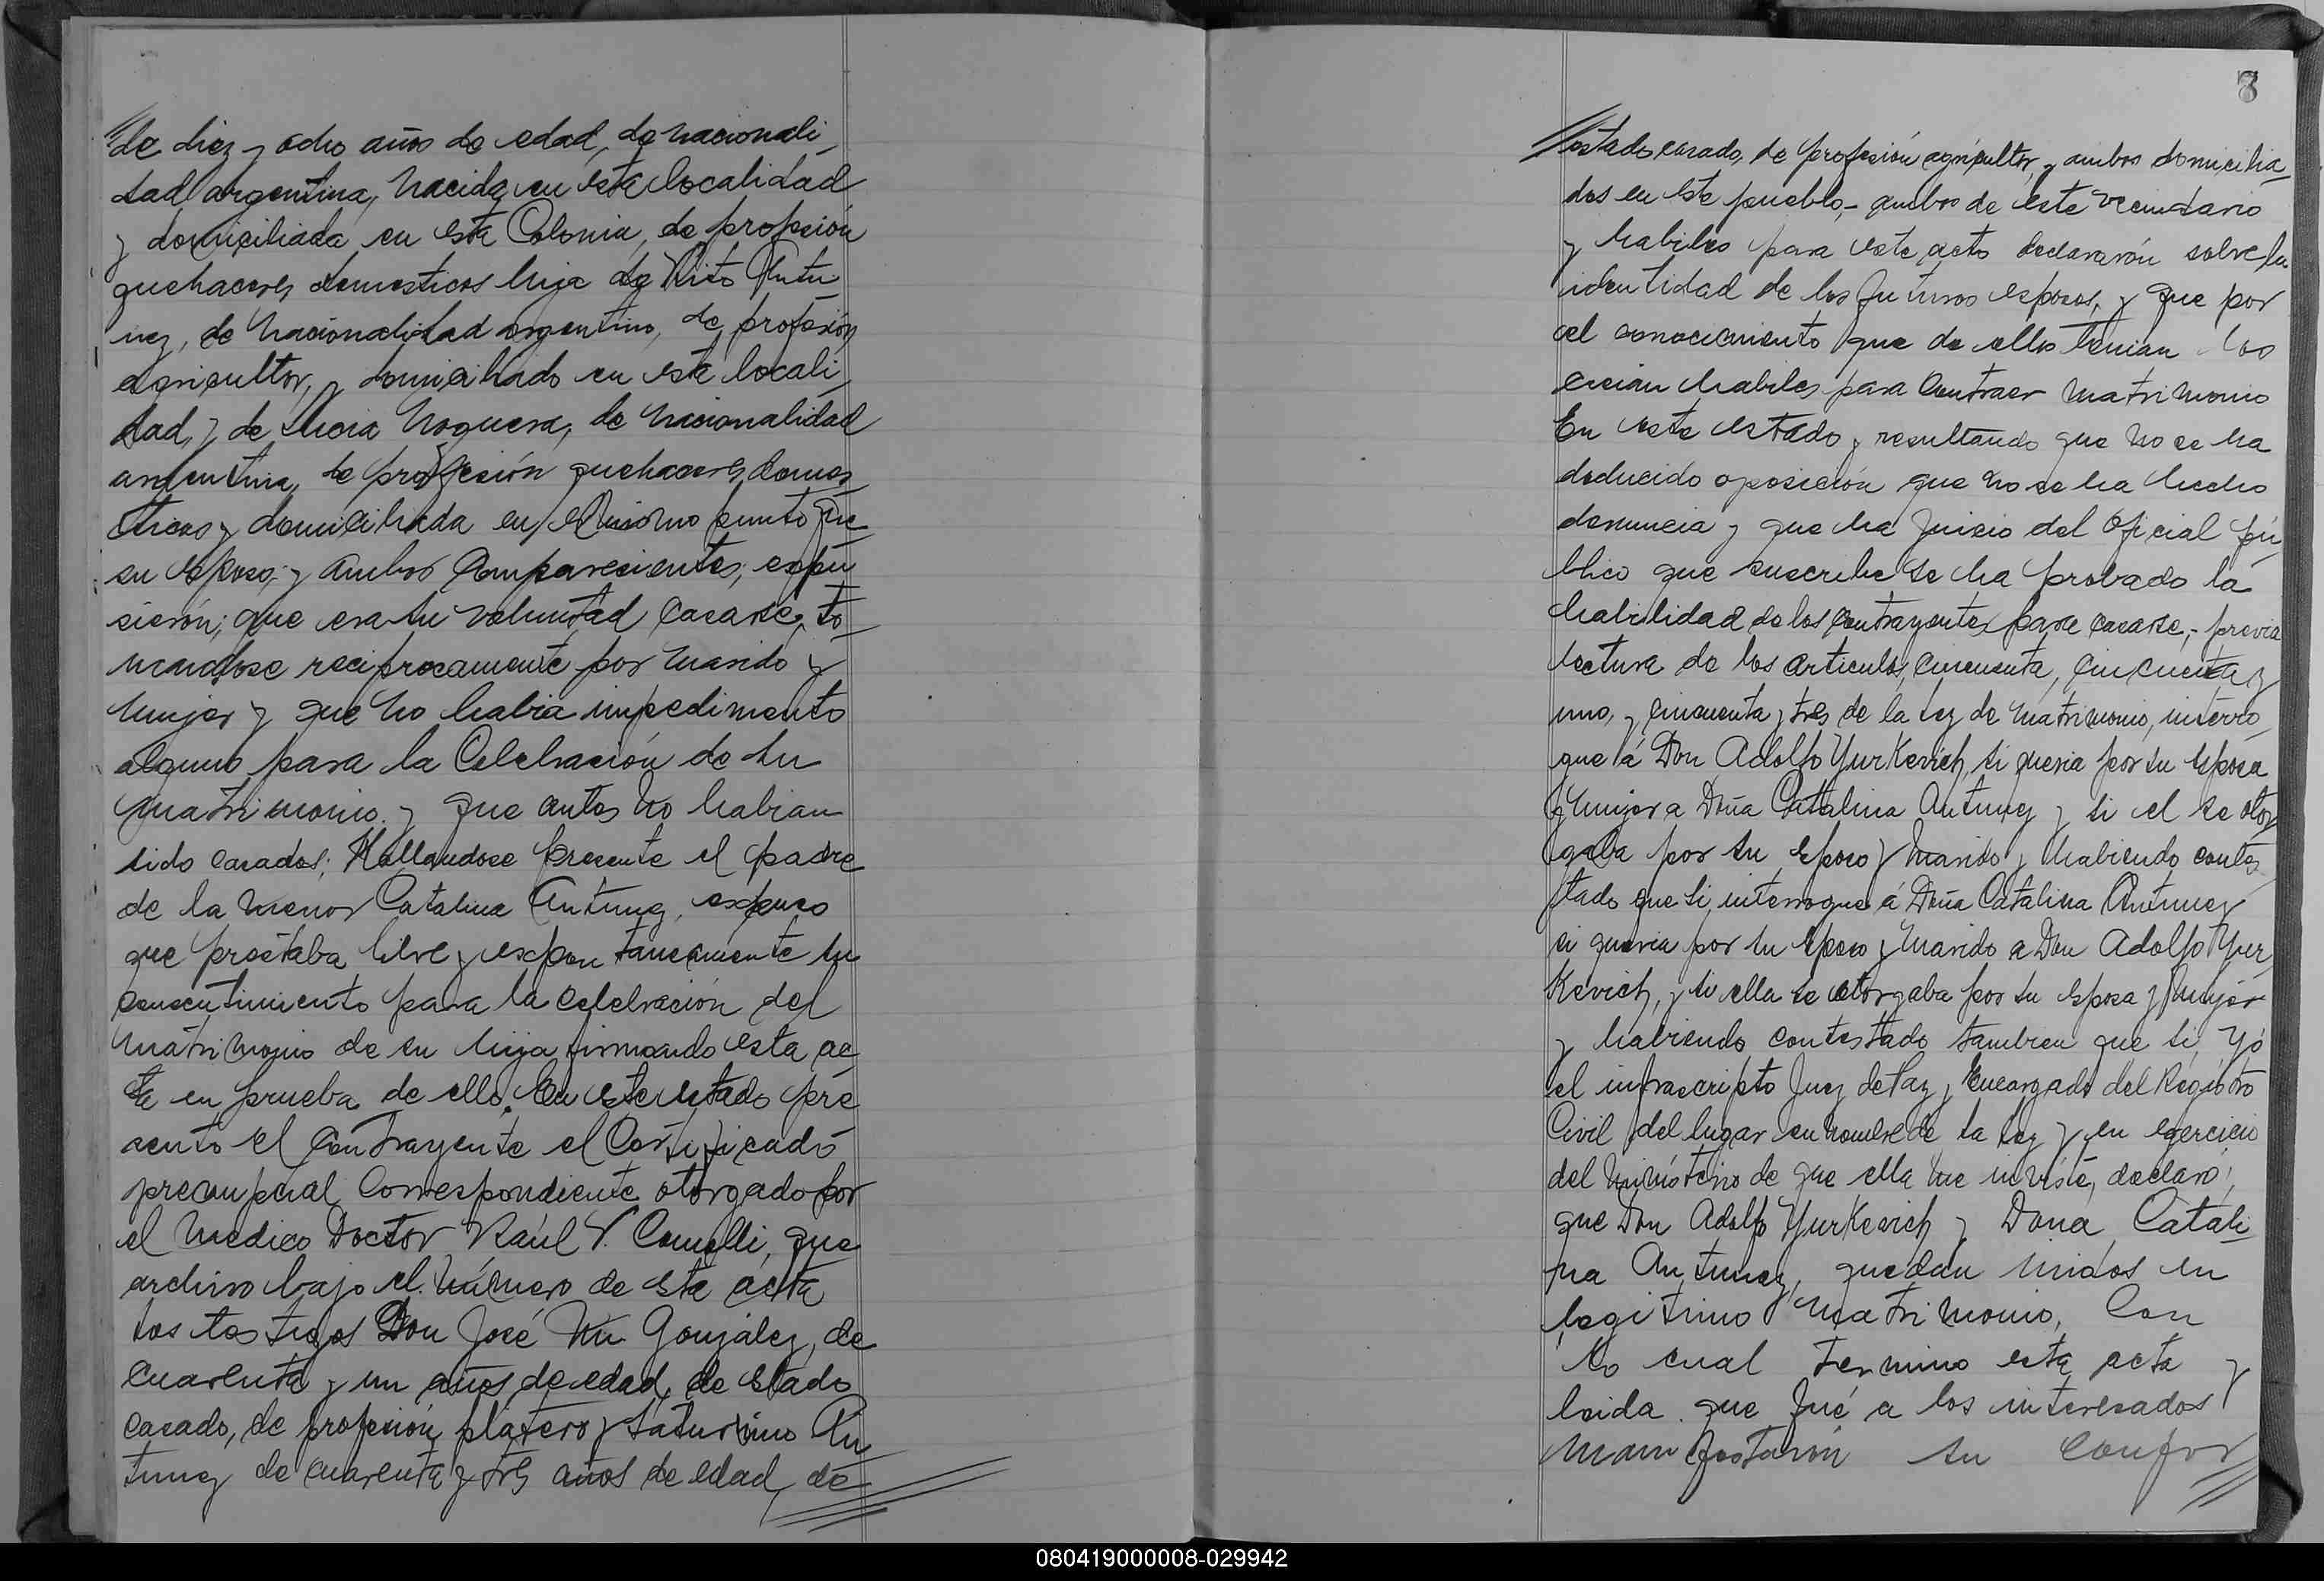 de diez y ocho años de edad, de nacionali
dad argentina, nacida en esta localidad
y domiciliada en esta Colonia, de profesión
quehaceres domesticos hija de Rito Antu
nez, de nacionalidad argentino, de profesión
agricultor, y domiciliado en esta locali
dad, y de Lucia Noguera, de nacionalidad
argentina, de profesión quehaceres domes
ticos y domiciliada en el mismo punto que
su esposo; y ambos Comparecientes; espu
sierón; que era su voluntad casarse, to
mandose reciprocamente por marido y
mujer y que no habia impedimento
alguno para la Celebración de su
matrimonio y que antes no habian
sido casados; Hallandose presente el padre
de la menor Catalina Antunez, expuso
que prestaba libre y expontaneamente su
consentimiento para la celebración del
matrimonio de su hija firmando esta ac
ta en prueba de ello. En este estado pre
sento el Contrayente el Certificado
prenupcial Correspondiente otorgado por
el Medico Doctor Raúl V. Comelli, que
archivo bajo el número de esta acta
Los testigos Don José M. Gonzalez, de
cuarenta y un años de edad, de estado
casado, de profesión platero y Saturnino An
tunez de cuarenta y tres años de edad, de
8
estado casado, de profesión agricultor, y ambos domicilia
dos en este pueblo,- ambos de este vecindario
y habiles para este acto declararón sobre la
identidad de los futuros esposos, y que por
el conocimiento que de ellos tenian los
creian habiles para Contraer matrimonio
En este estado y resultando que no se ha
deducido oposición que no se ha hecho
denuncia y que ha juicio del Oficial pú
blico que suscribe se ha probado la
habilidad de los Contrayentes para casarse,- previa
lectura de los articulos, cincuenta, cincuenta y
uno, y cincuenta y tres de la Ley de matrimonio, interro
que á Don Adolfo Yurkevich, si queria por su esposa
y mujer a Doña Catalina Antunez y si el se otor
gaba por su esposo y marido y habiendo contes
tado que si, interrogue á Doña Catalina Antunez
si queria por su esposo y marido a Don Adolfo Yur
Kevich, y si ella se otorgaba por su esposa y mujer
y habiendo contestado tambien que si, Yo
el infrascripto Juez de Paz y Encargado del Registro
Civil del lugar en nombre de la Ley y en egercicio
del ministerio de que ella me inviste, declaro;
que Don Adolfo Yurkevich y Dona Catali
na Antunez, quedan unidos en
legitimo matrimonio, Con
lo cual termino esta acta y
leida que fué a los interesados
manifestarón su confor
080419000008-029942